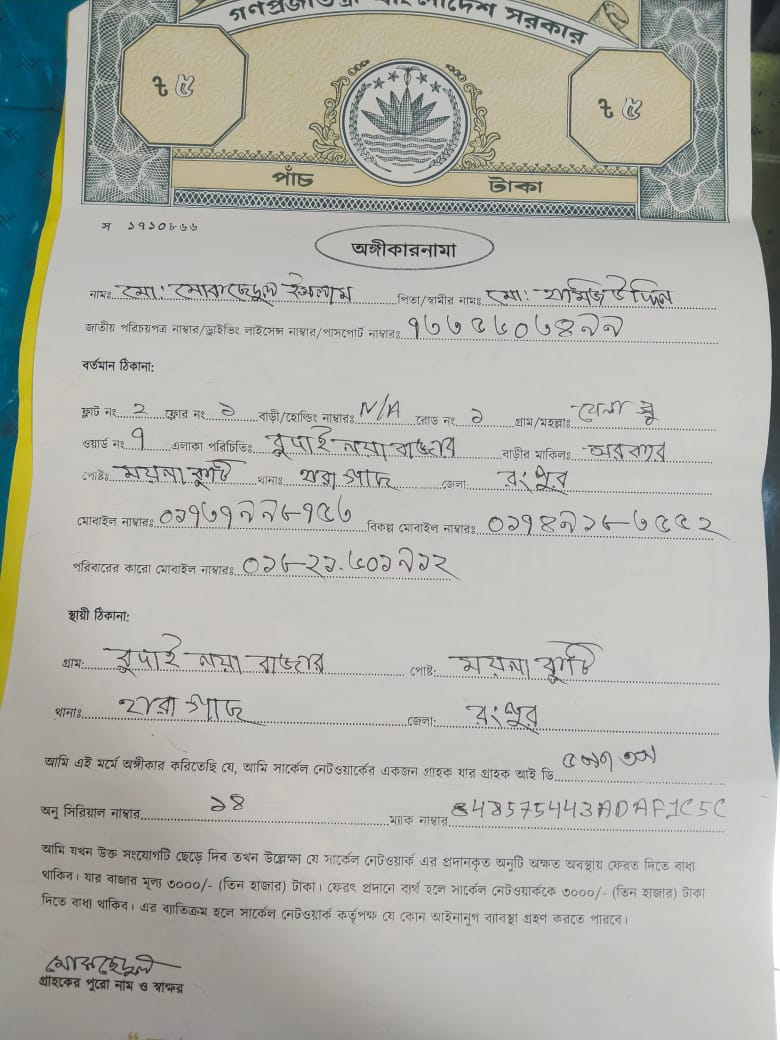 গণপ্রজাতন্ত্রী বাংলাদেশ সরকার
৳ ৫ ৳ ৫
পাঁচ টাকা
স ১৭১০৮৬৬
অঙ্গীকারনামা
নামঃ মো: মোরছেদুল ইসলাম পিতা/স্বামীর নামঃ মো: হামিজ উদ্দিন
জাতীয় পরিচয়পত্র নাম্বার/ড্রাইভিং লাইসেন্স নাম্বার/পাসপোর্ট নাম্বারঃ
বর্তমান ঠিকানা:
ফ্লাট নং ২ ফ্লোর নং ১ বাড়ী/হোল্ডিং নাম্বারঃ N/A রোড নং ১ গ্রাম/মহল্লাঃ
ওয়ার্ড নং ৭ এলাকা পরিচিতিঃ বুদাই নয়া বাজার বাড়ীর মালিকঃ
পোষ্টঃ ময়না কুটি থানাঃ হারাগাছ জেলা: রংপুর
মোবাইল নাম্বারঃ বিকল্প মোবাইল নাম্বারঃ
পরিবারের কারো মোবাইল নাম্বারঃ
স্থায়ী ঠিকানা:
গ্রাম: বুদাই নয়া বাজার পোষ্ট: ময়না কুটি
থানাঃ হারাগাছ জেলা: রংপুর
আমি এই মর্মে অঙ্গীকার করিতেছি যে, আমি সার্কেল নেটওয়ার্কের একজন গ্রাহক যার গ্রাহক আই ডি
অনু সিরিয়াল নাম্বার ১৪ ম্যাক নাম্বার 848575443ADAF1C5C
আমি যখন উক্ত সংযোগটি ছেড়ে দিব তখন উল্লেক্ষ্য যে সার্কেল নেটওয়ার্ক এর প্রদানকৃত অনুটি অক্ষত অবস্থায় ফেরত দিতে বাধ্য
থাকিব। যার বাজার মূল্য ৩০০০/- (তিন হাজার) টাকা। ফেরৎ প্রদানে ব্যর্থ হলে সার্কেল নেটওয়ার্ককে ৩০০০/- (তিন হাজার) টাকা
দিতে বাধ্য থাকিব। এর ব্যাতিক্রম হলে সার্কেল নেটওয়ার্ক কর্তৃপক্ষ যে কোন আইনানুগ ব্যাবস্থা গ্রহণ করতে পারবে।
মোরছেদুল
গ্রাহকের পুরো নাম ও স্বাক্ষর